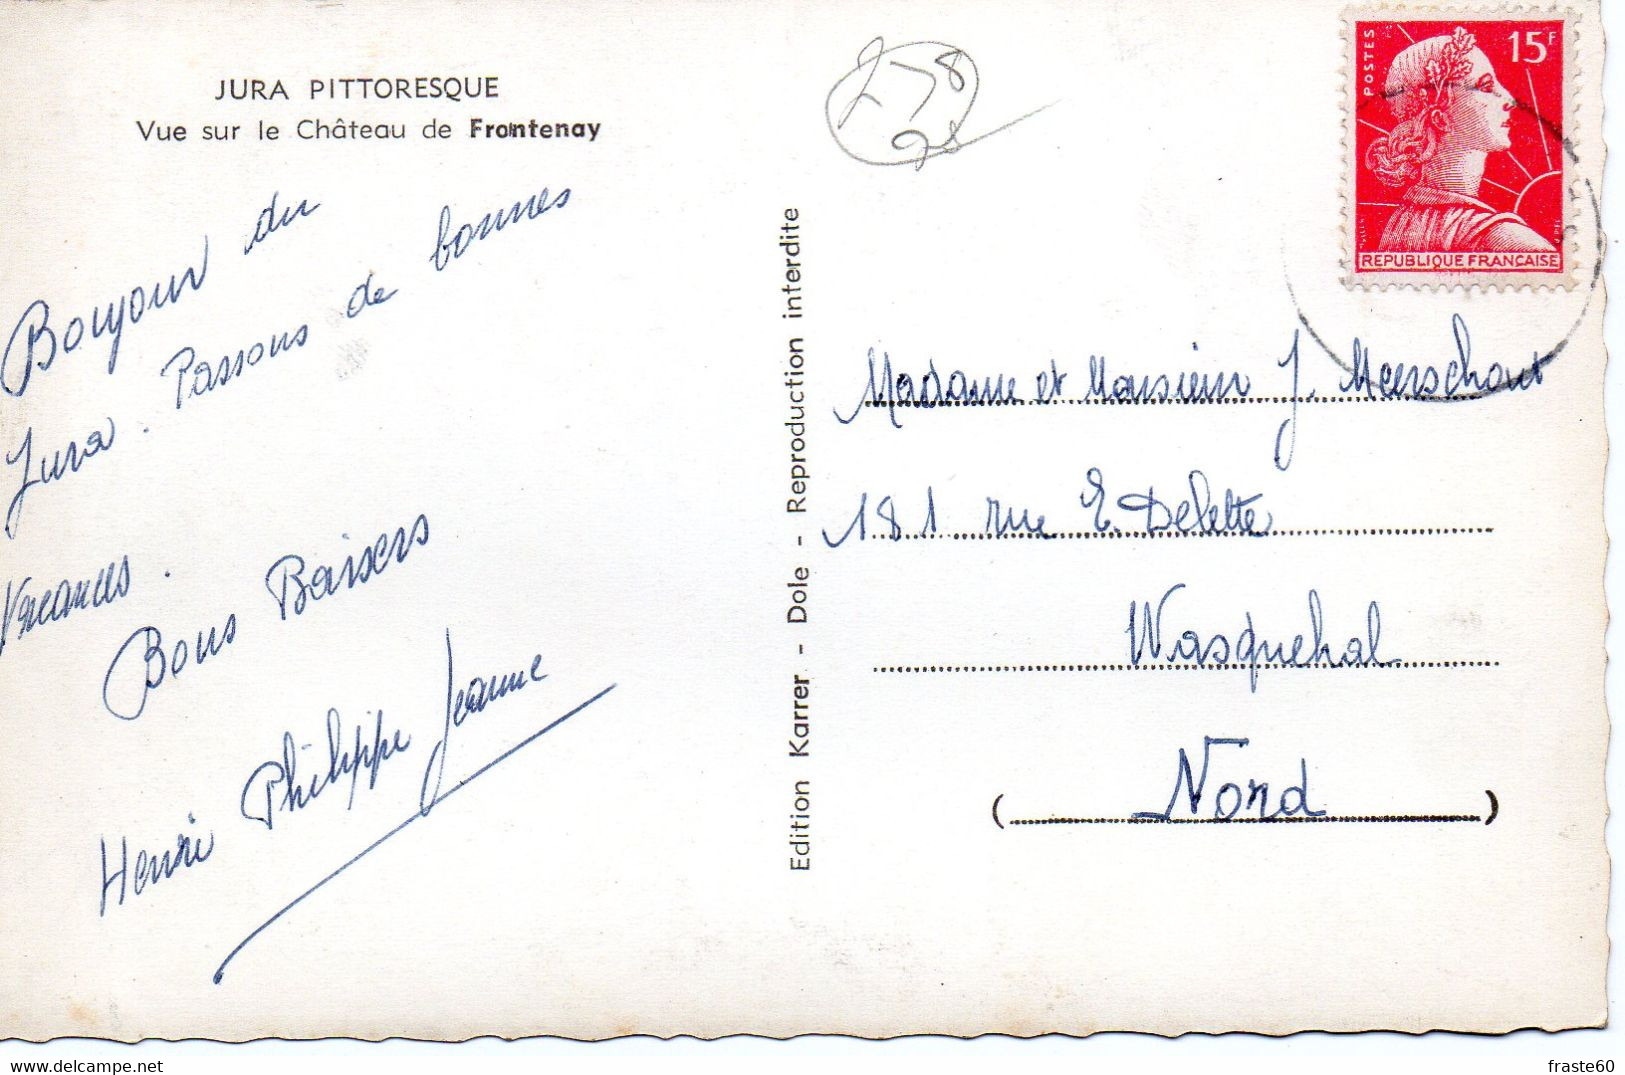 JURA PITTORESQUE
Vue sur le Château de Frontenay
Bonjour du
Jura. Passons de bonnes
Vacances.
Bons Baisers
Henri Philippe Jeanne
Edition Karrer - Dole - Reproduction interdite
POSTES
15F
REPUBLIQUE FRANÇAISE
Madame et Monsieur J. Meerschaut
181 rue E. Delette
Wasquehal
( Nord )
fraste60